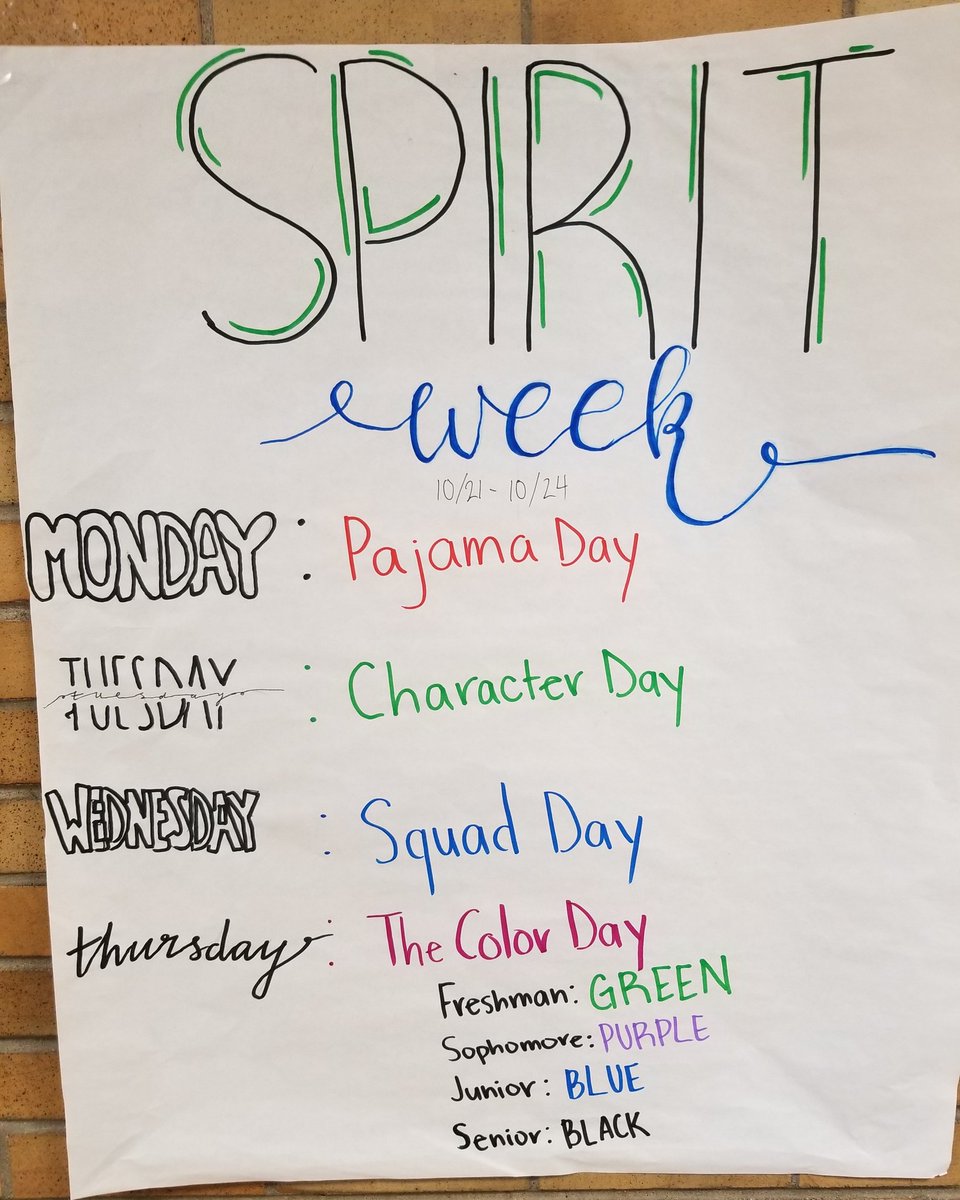 SPIRIT
week
10/21 - 10/24
MONDAY: Pajama Day
TUESDAY tuesday : Character Day
WEDNESDAY : Squad Day
thursday : The Color Day
Freshman: GREEN
Sophomore: PURPLE
Junior: BLUE
Senior: BLACK